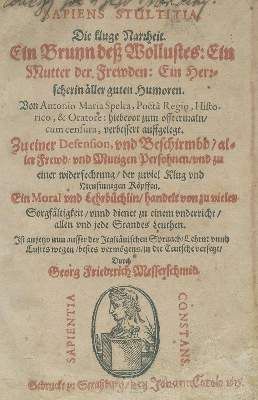 SAPIENS STULTITIA
Die kluge Narrheit.
Ein Brunn deß Wollustes: Ein
Mutter der Frewden: Ein Herr-
scherin aller guten Humoren.
Von Antonio Maria Spelta, Poëta Regio, Histo-
rico, & Oratore: hiebevor zum offtermaln/
cum censura, verbessert außgelegt.
Zu einer Defension, und Beschirmbd/ al-
ler Frewd- und Mutigen Personen/ und zu
einer widerfechtung/ der zuviel Klug und
Köpffen.
Ein Moral und Lehrbüchlin/ handelt von zu vieler
Sorgfältigkeit/ unnd dienet zu einem underricht/
allen und jede Standes Leuthen.
Ist anjetzo zum ausser der Italiänischen Spraach/ Lehrnt unnd
Lusts wegen/ bestes vermögens/ in die Teutsche versetzt/
Durch
Georg Friederich Messerschmid.
SAPIENTIA
CONSTANS
Gedruckt zu Straßburg/ bey Johann Carolo 1615.